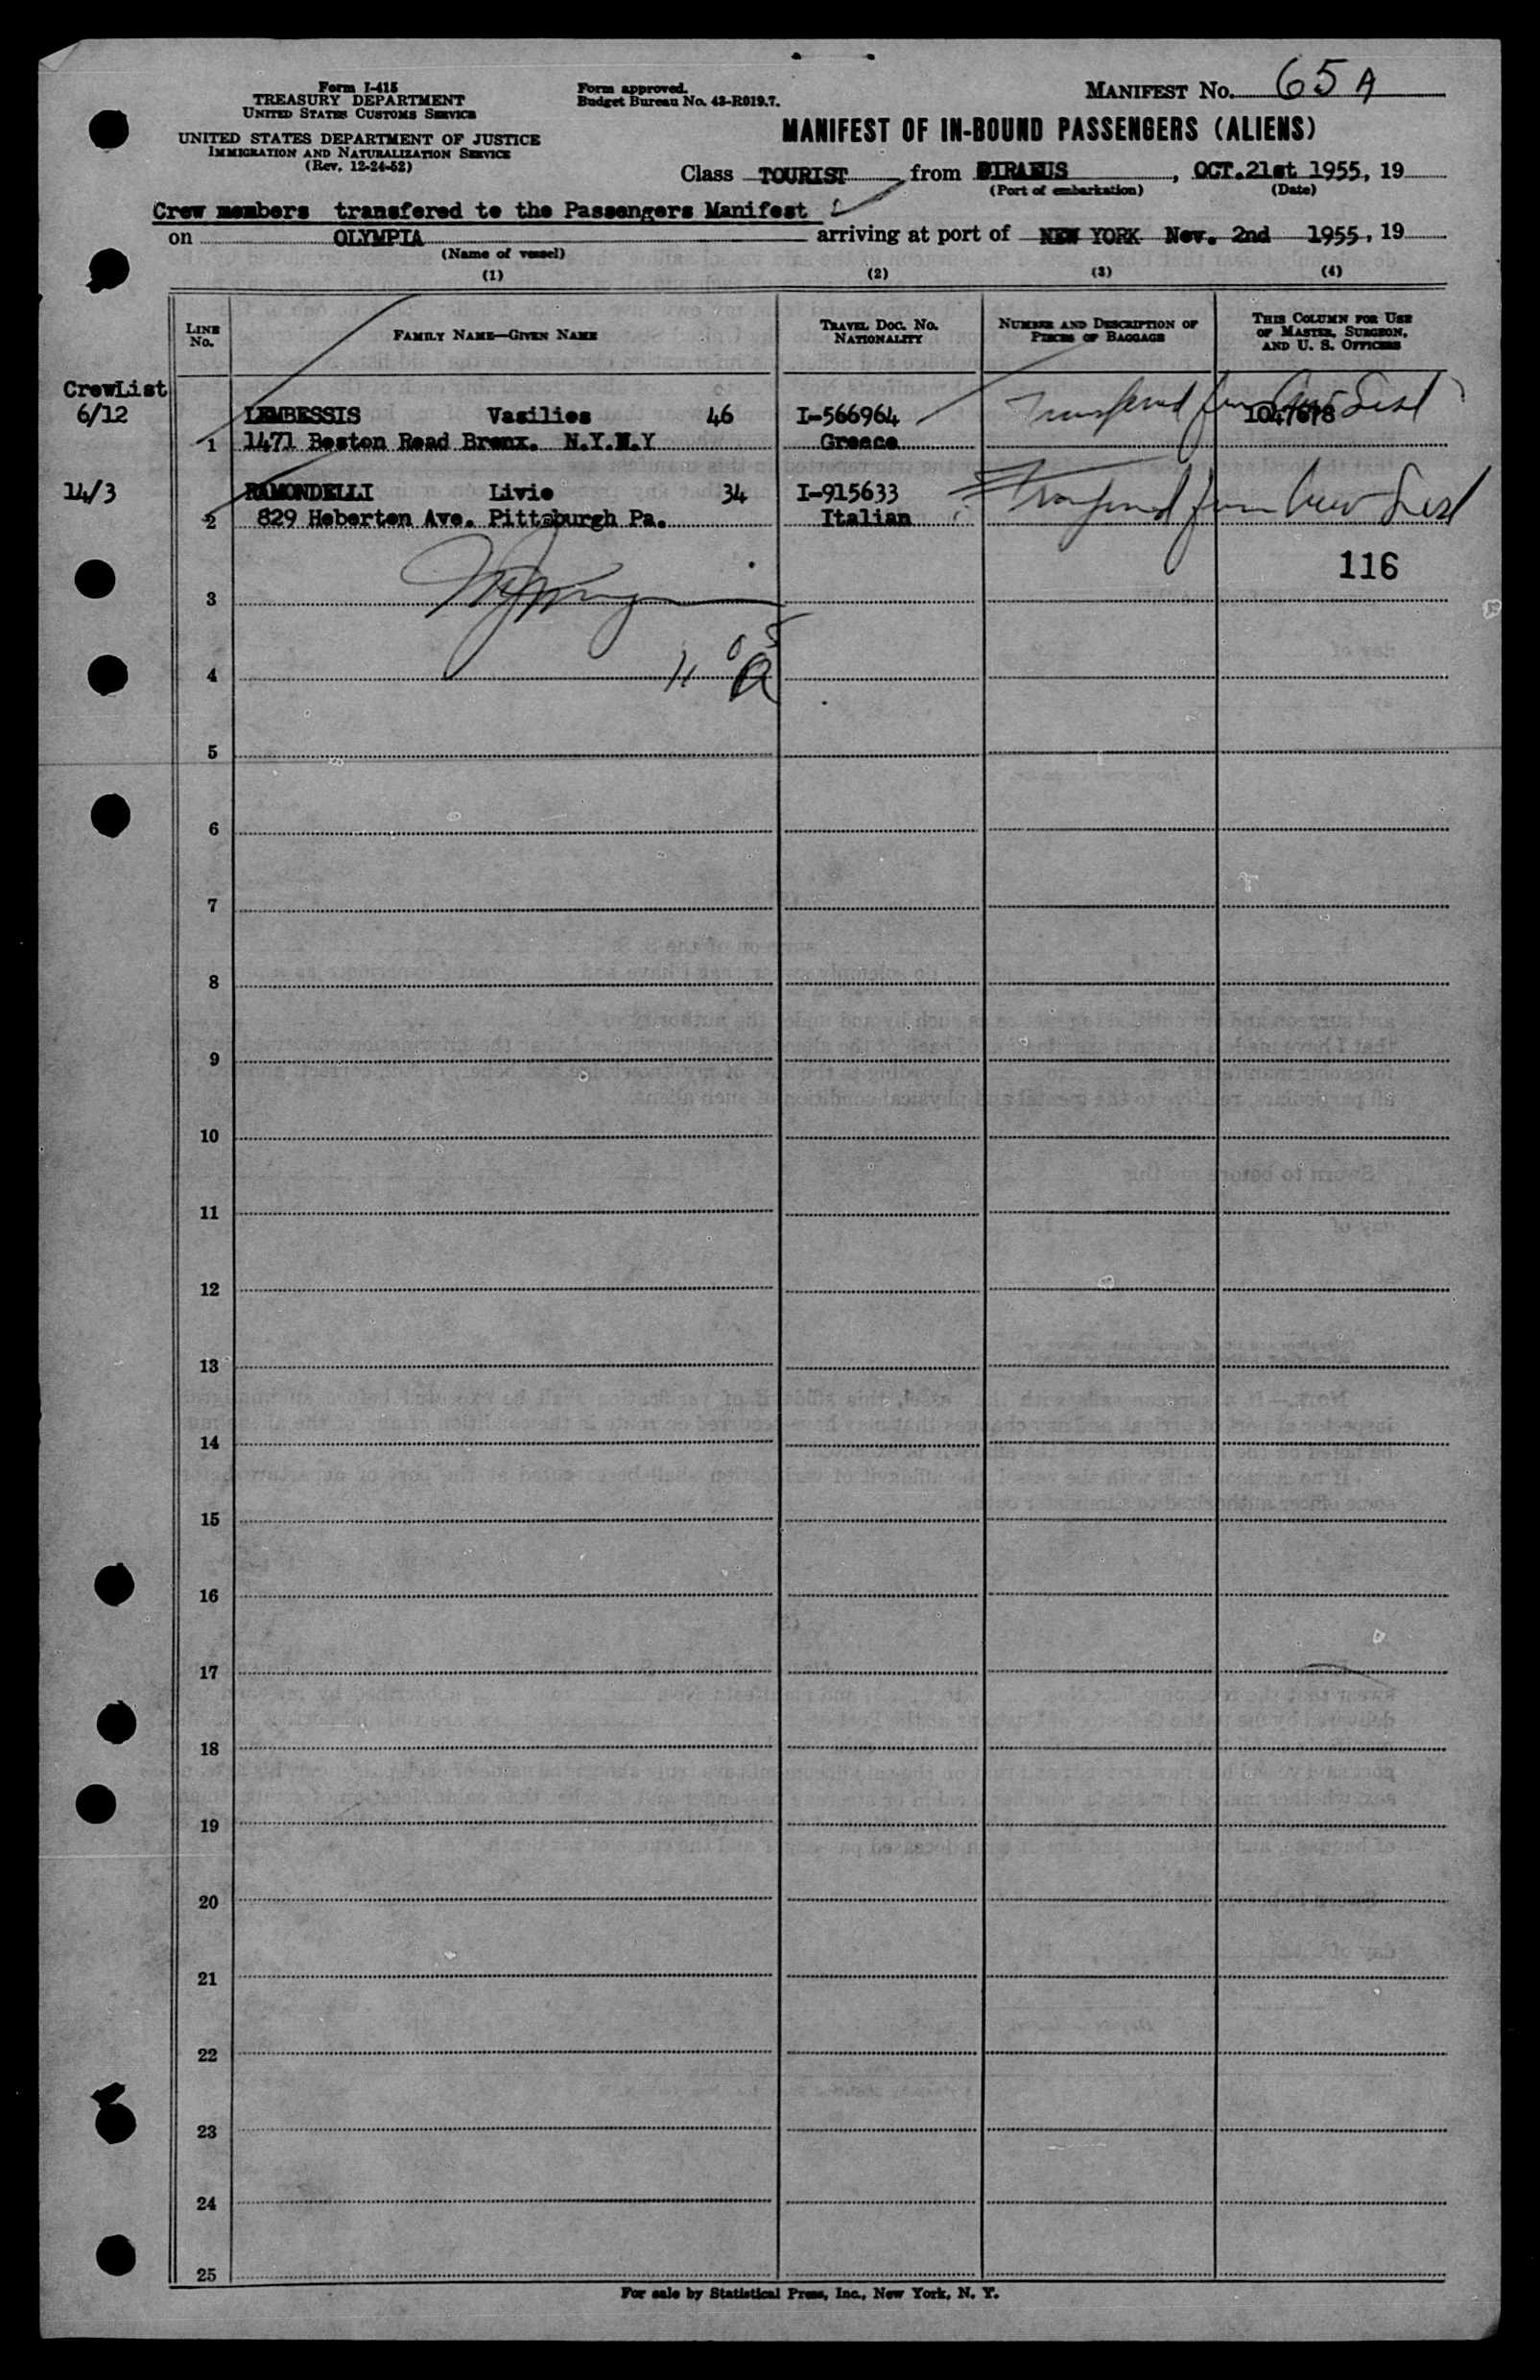 Form I-415
TREASURY DEPARTMENT
UNITED STATES CUSTOMS SERVICE
UNITED STATES DEPARTMENT OF JUSTICE
IMMIGRATION AND NATURALIZATION SERVICE
(Rev. 12-24-52)
Form approved.
Budget Bureau No. 43-R019.7.
MANIFEST No. 65 A
MANIFEST OF IN-BOUND PASSENGERS (ALIENS)
Class TOURIST from PIRAEUS, OCT.21st 1955, 19
(Port of embarkation) (Date)
Crew members transfered to the Passengers Manifest
on OLYMPIA arriving at port of NEW YORK Nov. 2nd 1955, 19
(Name of vessel)
(1) (2) (3) (4)
LINE No. FAMILY NAME—GIVEN NAME TRAVEL DOC. NO. NATIONALITY NUMBER AND DESCRIPTION OF PIECES OF BAGGAGE THIS COLUMN FOR USE OF MASTER, SURGEON, AND U. S. OFFICERS
CrewList
6/12 LEMBESSIS Vasilios 46 I-566964 Transferred from Crew List 1047678
1 1471 Boston Road Bronx. N.Y.N.Y Greece
14/3 RAMONDELLI Livio 34 I-915633 Transferred from Crew List
2 829 Heberton Ave. Pittsburgh Pa. Italian
116
3
4
5
6
7
8
9
10
11
12
13
14
15
16
17
18
19
20
21
22
23
24
25
For sale by Statistical Press, Inc., New York, N. Y.